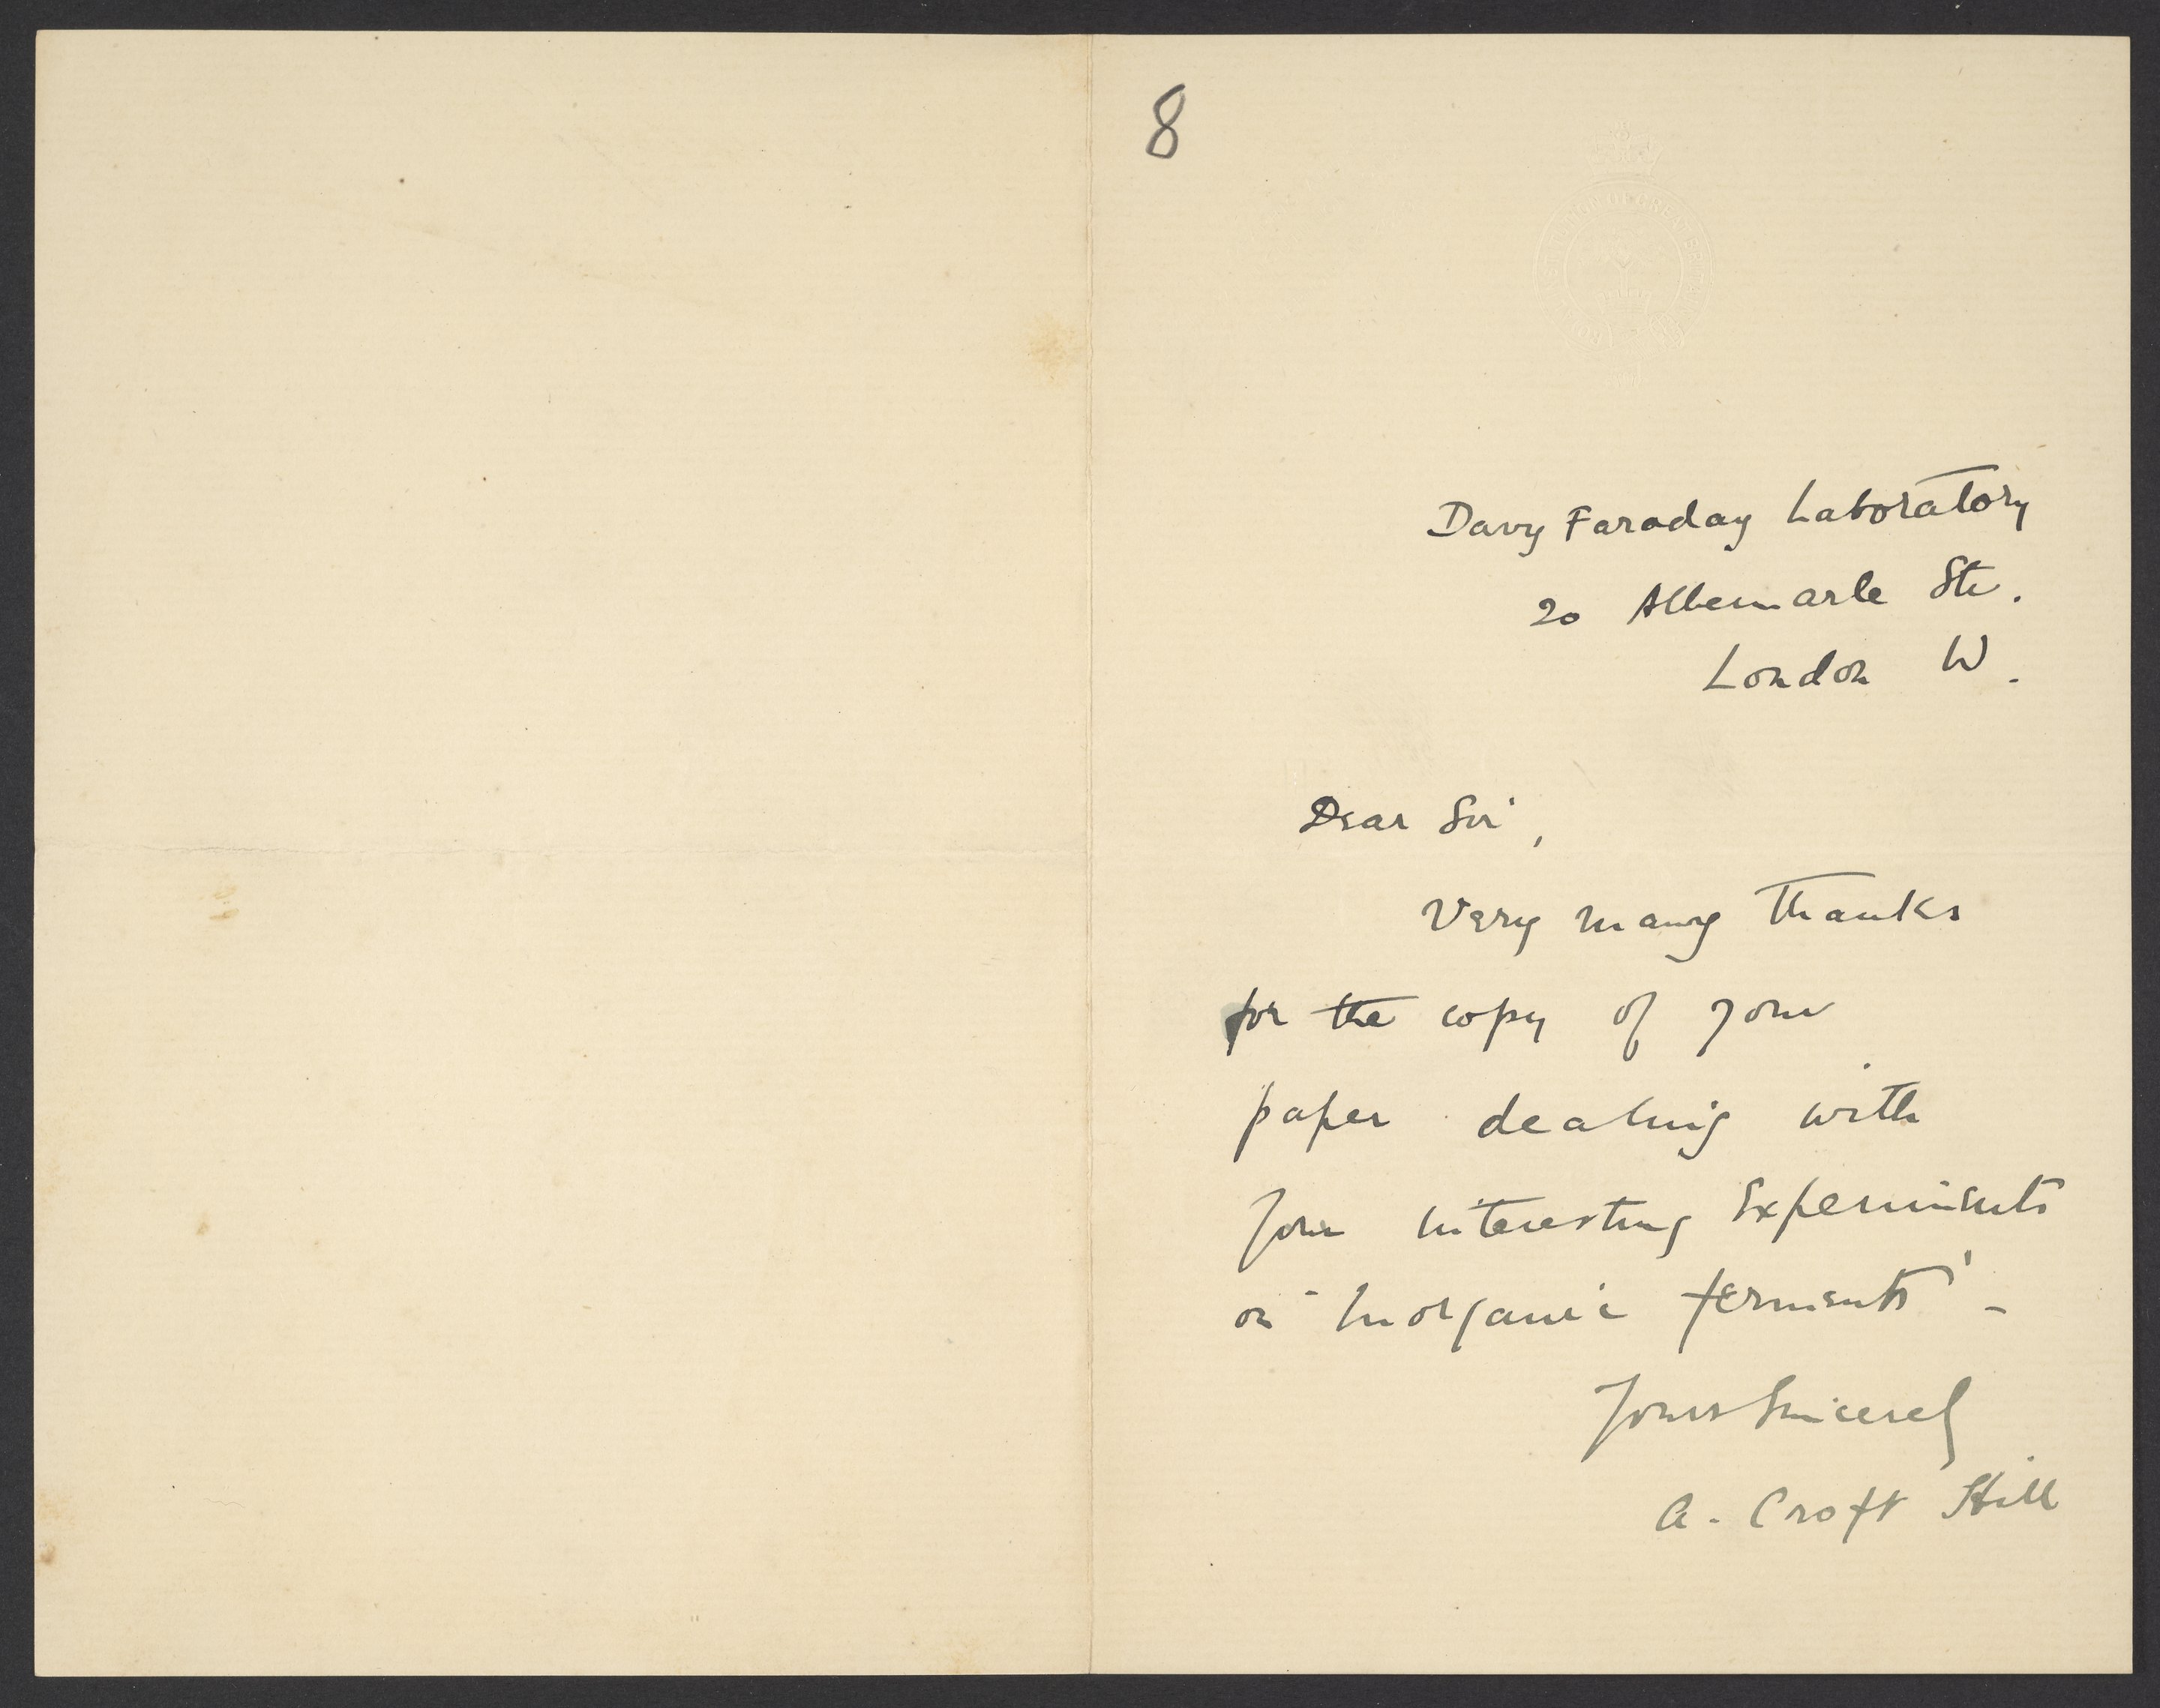 8
Davy Faraday Laboratory
20 Albemarle Str.
London W.
Dear Sir,
Very many thanks
for the copy of your
paper dealing with
your interesting experiments
on "Inorganic ferments" -
Yours Sincerely
A. Croft Hill